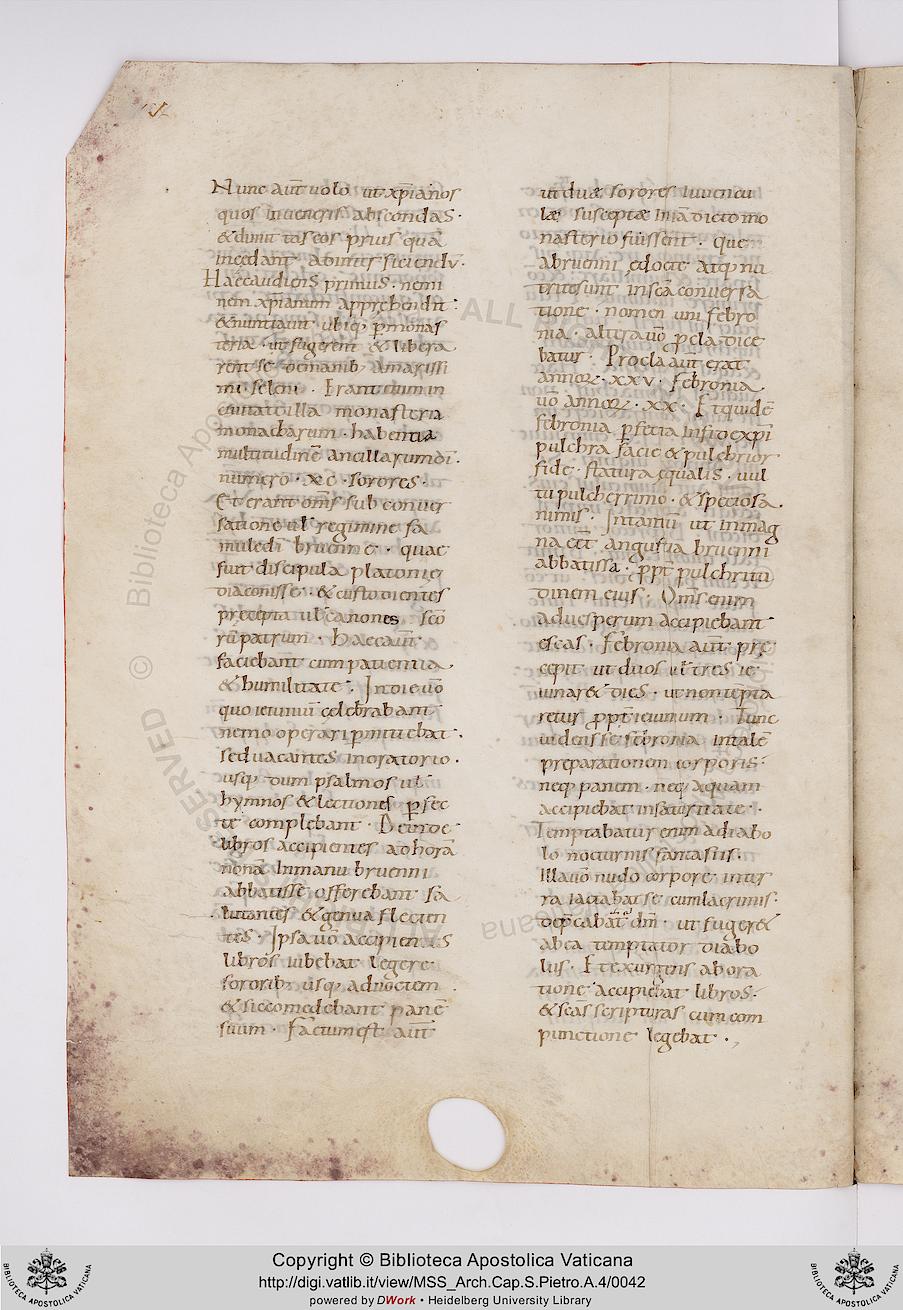 Nunc aut̄ uolo ut xp̄ianos
quos inueneris abscondas ·
& dimittas eos prius quā
incedant abinuicē
Haec audiens primus · nemi
nem xpianum apprehendit :
& nuntiauit · ubiq; p̄ monas
teria · ut fugerent & libera
rent se de manib; amarissi
mi seleni · Erant eum in
ciuitate illa monasteria
monacharum · habentia
multitudinē ancillarum dī ·
numero · xc · sorores ·
Et erant om̄s sub conuer
satione ul̄ regimine fa
mule dī bruenne · quae
fuit discipula platonie
diaconisse · & custodientes
precepta ul̄ canones · sc̄o
rū patrum · haec aut̄
faciebant cum patientia
& humilitate · In die uō
quo ieiuniū celebrabant
nemo operari p̄mittebat ·
sed uacantes in oratorio ·
usq; dum psalmos ul̄
hymnos & lectiones p̄fec
te complebant · Deinde
libros accipientes ad horā
nonā In manu bruenni
abbatisse offerebant sa
lutantes & genua flecten
tes · Ipsa uō accipiens
libros iubebat legere
sororib; usq; ad noctem
& sic comedebant panē
suum · factum est aut̄
ut duæ sorores iuuencu
læ susceptæ In iā dicto mo
nasterio fuissent · que
a bruenni edocte atq; nu
trite sunt in sc̄a conuersa
tione · nomen uni febro
nia · alter a uō p̄cla dice
batur · Procla aut̄ erat
annoꝝ · xxv · febronia
uō annoꝝ · xx · Et quidē
febronia p̄fecta In sc̄o xp̄i
pulchra facie & pulchrior
fide · statura equalis · uul
tu pulcherrimo · & speciosa
nimis · Intantū ut in mag
na eēt angustia bruenni
abbatissa · pp̄t pulchritu
dinem eius · Om̄s enim
aduesperum accipiebant
escas · febronia aut̄ prę
cepit ut duos ul̄ tres ie
iunar& dies · ut non tēpta
retur pp̄t ieiunium · Tunc
uidens se febronia in talē
preparationem corporis ·
neq; panem · neq; aquam
accipiebat in saturitate ·
Temptabatur enim a diabo
lo nocturnis fantasiis ·
Illa uō nudo corpore in ter
ra iactabat se cum lacrimis ·
dep̄cabat̄ dm̄ · ut fuger&
ab ea temptator diabo
lus · Et exurgens ab ora
tione accipiebat libros ·
& sc̄as scripturas cum com
punctione legebat · ,
Copyright © Biblioteca Apostolica Vaticana
http://digi.vatlib.it/view/MSS_Arch.Cap.S.Pietro.A.4/0042
powered by DWork • Heidelberg University Library